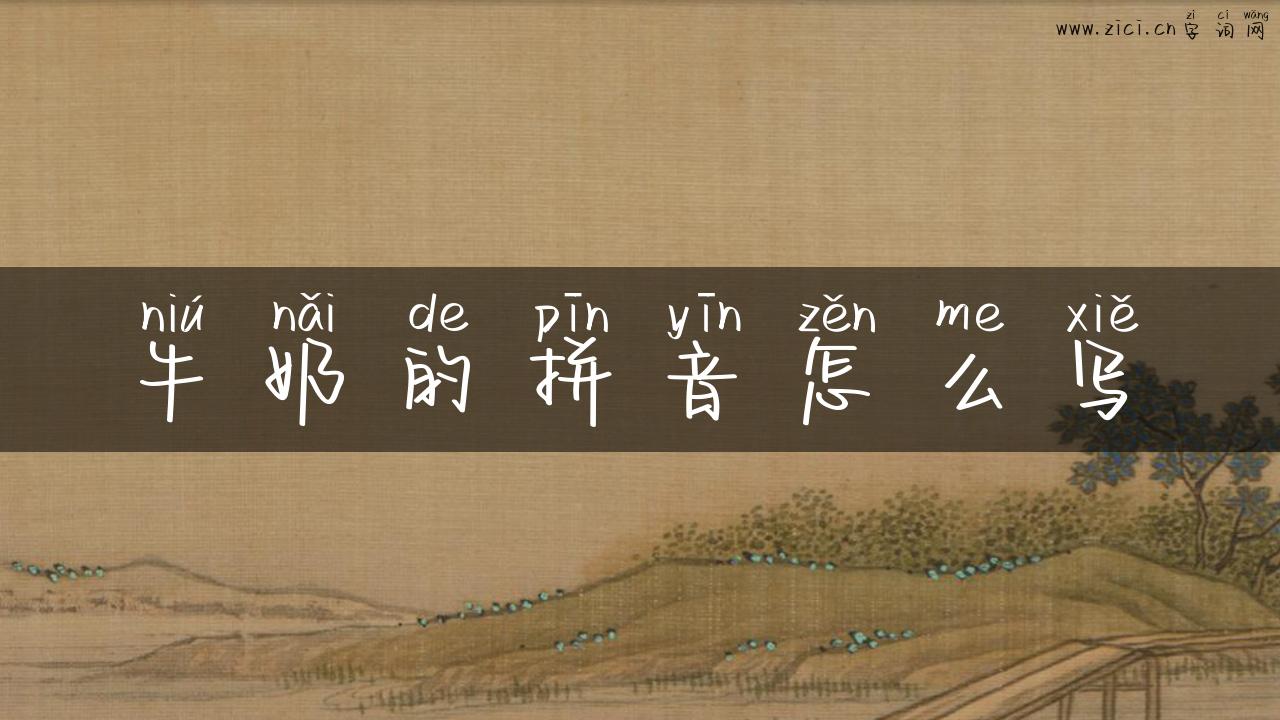 zì cí wǎng
www.zici.cn 字词网
niú nǎi de pīn yīn zěn me xiě
牛奶的拼音怎么写